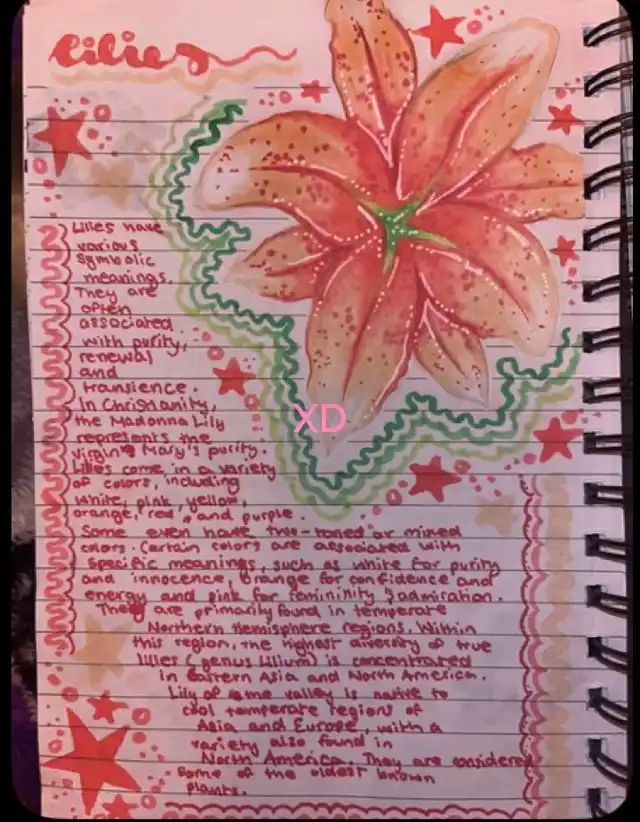 lilies
Lilies have
various
Symbolic
meanings.
They are
often
associated
with purity,
renewal
and
transience.
In Christianity,
the Madonna Lily
represents the
virgin Mary's purity.
Lilies come in a variety
of colors, including
white, pink, yellow,
orange, red, and purple.
Some even have two-toned or mixed
colors. Certain colors are associated with
Specific meanings, such as white for purity
and innocence, orange for confidence and
energy and pink for femininity & admiration.
They are primarily found in temperate
Northern Hemisphere regions. Within
this region, the highest diversity of true
lilies (genus Lilium) is concentrated
in Eastern Asia and North America.
Lily of the valley is native to
cool temperate regions of
Asia and Europe, with a
variety also found in
North America. They are considered
Some of the oldest known
plants.
XD